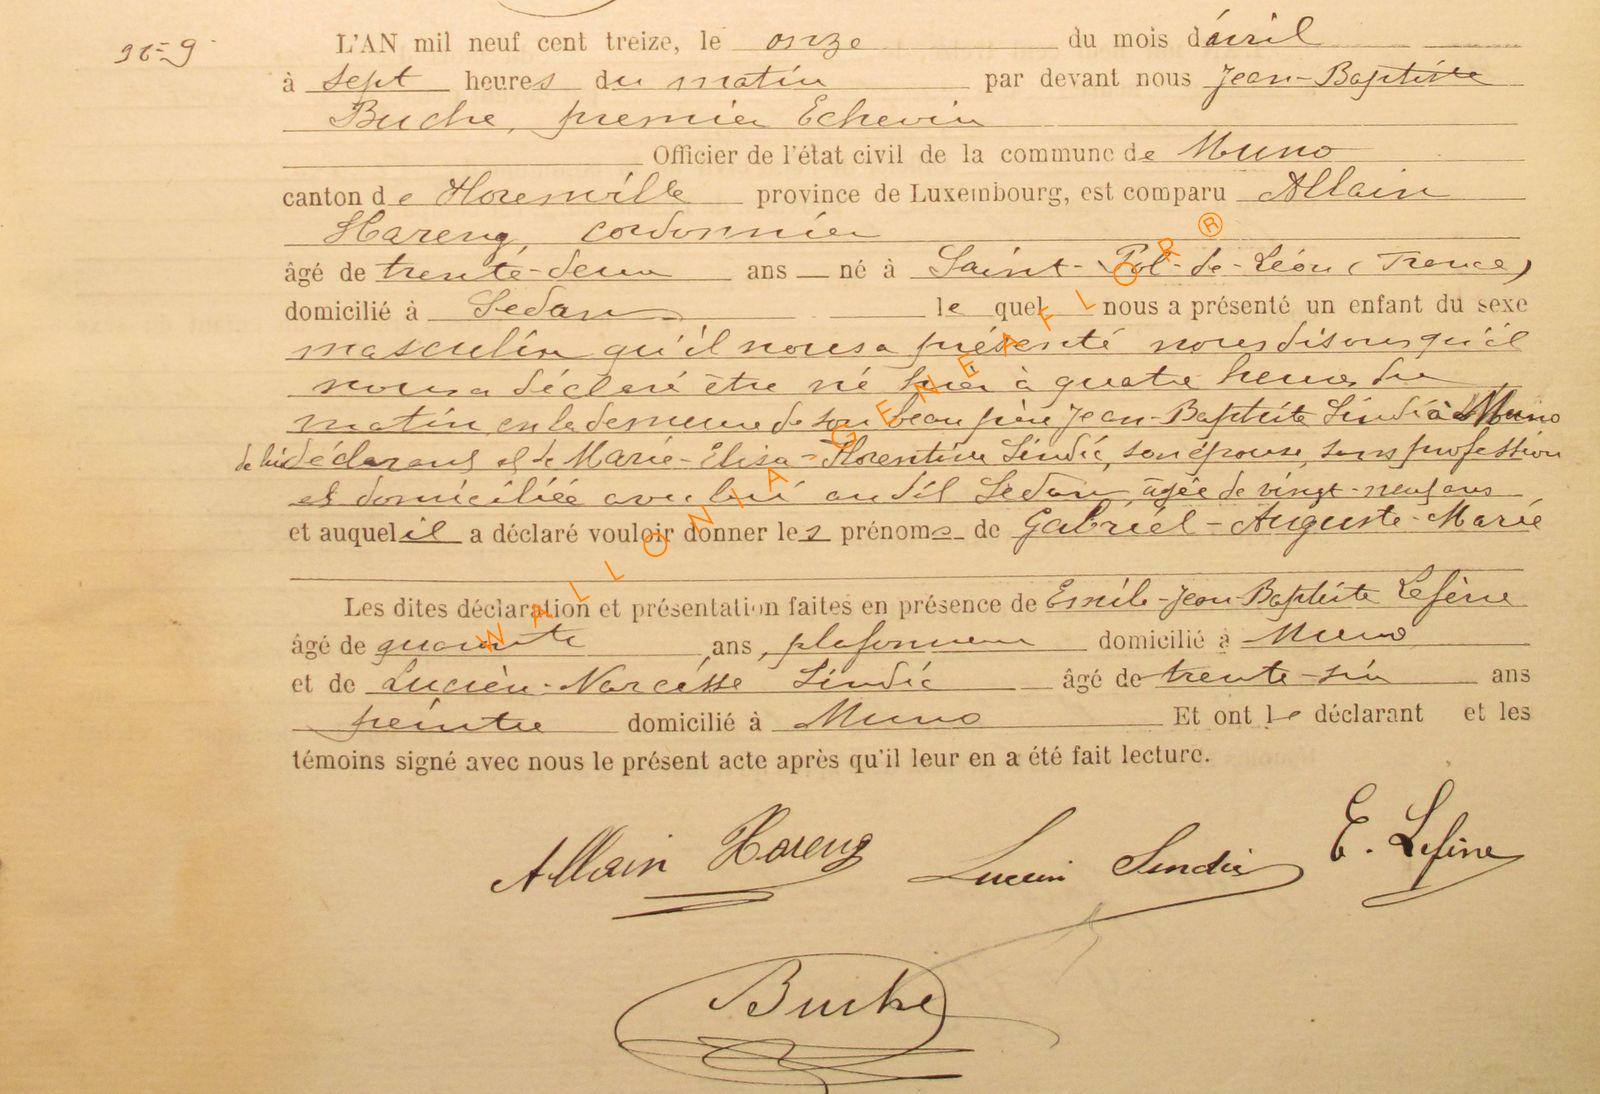 N° 9
L'AN mil neuf cent treize, le onze du mois d'avril
à sept heures du matin par devant nous Jean-Baptiste
Buche, premier Echevin
Officier de l'état civil de la commune de Muno
canton de Florenville province de Luxembourg, est comparu Allain
Hareng, cordonnier
âgé de trente-deux ans né à Saint-Pol-de-Léon (France)
domicilié à Sedan le quel nous a présenté un enfant du sexe
masculin qu'il nous a présenté nous disons qu'il
nous a déclaré être né hier à quatre heures du
matin, en la demeure de son beau père Jean-Baptiste Sindic à Muno
de lui déclarant et de Marie-Elisa-Florentine Sindic, son épouse, sans profession
et domiciliée avec lui au dit Sedan, âgée de vingt-neuf ans
et auquel il a déclaré vouloir donner les prénoms de Gabriél-Auguste-Marie
Les dites déclaration et présentation faites en présence de Emile-Jean-Baptiste Lefèvre
âgé de quarante ans, plafonneur domicilié à Muno
et de Lucien-Narcisse Sindic âgé de trente-six ans
peintre domicilié à Muno Et ont le déclarant et les
témoins signé avec nous le présent acte après qu'il leur en a été fait lecture.
Allain Hareng Lucien Sindic E. Lefèvre
Buche
WALLONIA-GENEAFLOR®